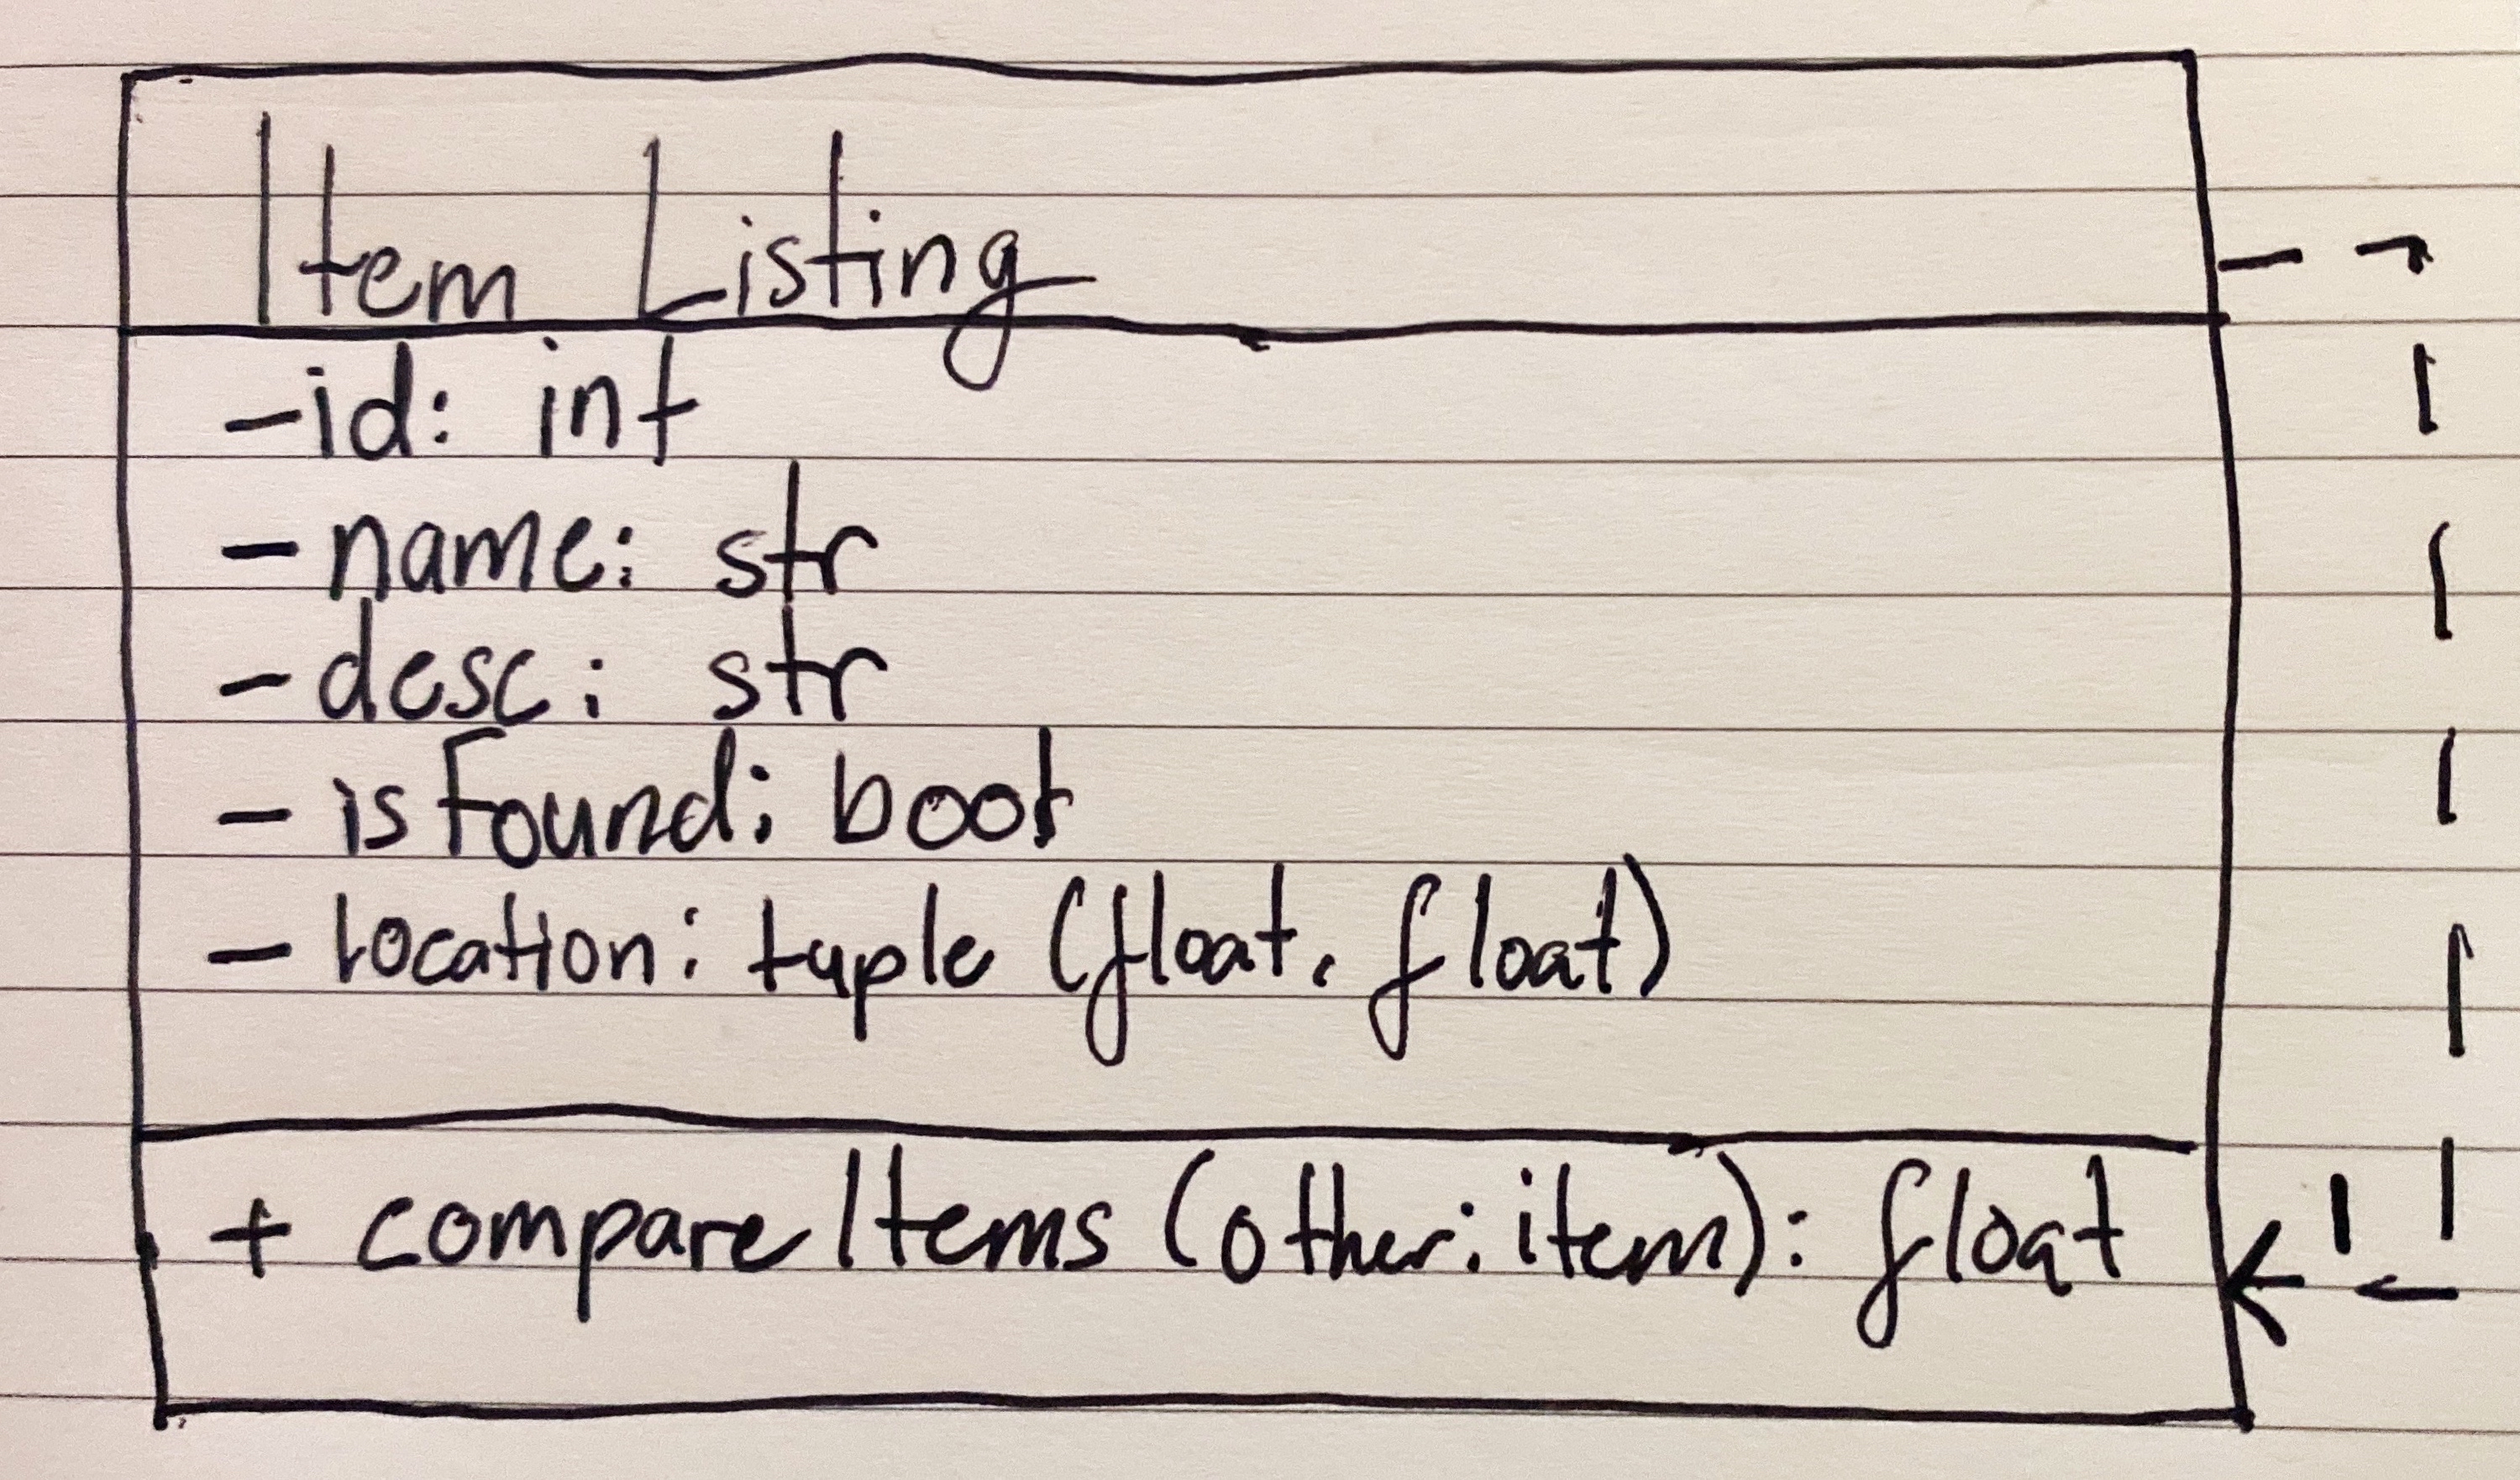 Item Listing
-id: int
- name: str
- desc: str
- isFound: bool
- location: tuple (float, float)
+ compareItems (other: item): float